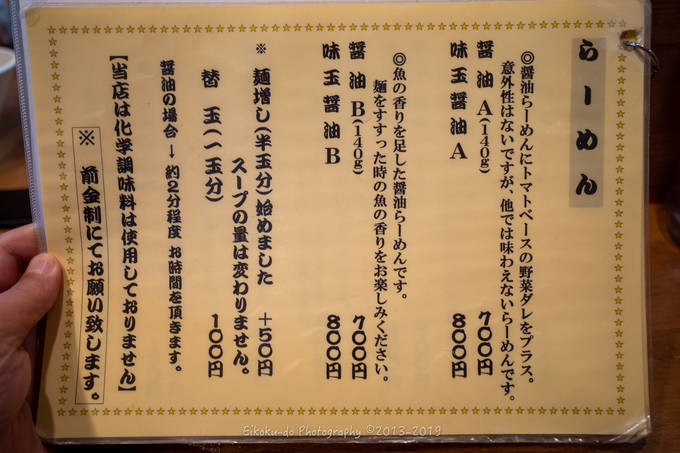 らーめん
◎醤油らーめんにトマトベースの野菜ダレをプラス。
意外性はないですが、他では味わえないらーめんです。
醤油A(140g) 700円
味玉醤油A 800円
◎魚の香りを足した醤油らーめんです。
麺をすすった時の魚の香りをお楽しみください。
醤油B(140g) 700円
味玉醤油B 800円
※ 麺増し(半玉分)始めました +50円
スープの量は変わりません。
替玉(一玉分) 100円
醤油の場合→約2分程度 お時間を頂きます。
【当店は化学調味料は使用しておりません】
※ 前金制にてお願い致します。
Eikoku-do Photography ©2013-2019